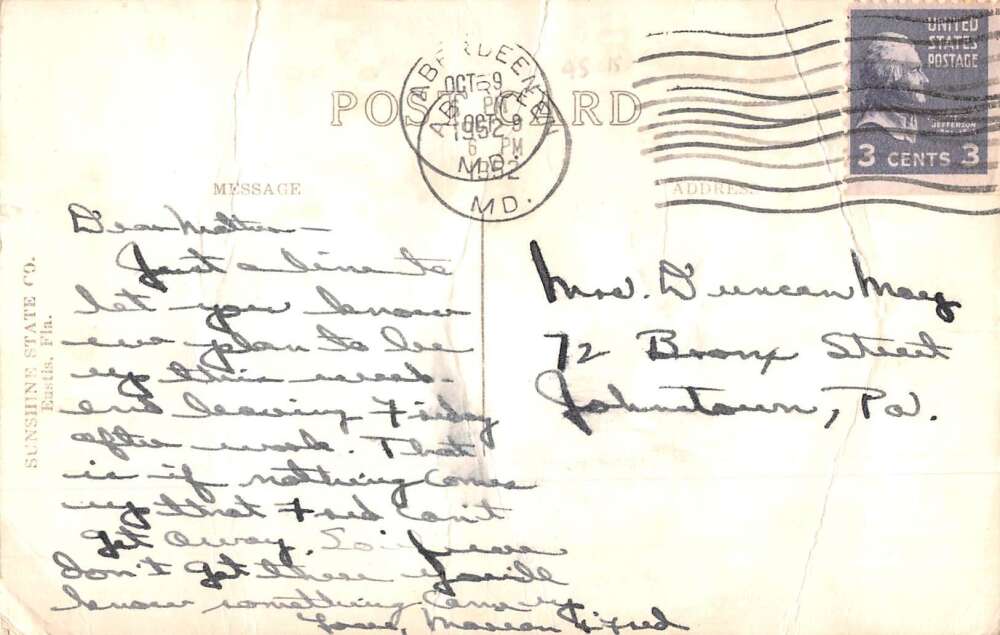 UNITED
STATES
POSTAGE
JEFFERSON
3 CENTS 3
ABERDEEN
OCT 9
6 PM
1952
MD.
ABERDEEN
OCT 9
6 PM
1952
MD.
POST CARD
MESSAGE
ADDRESS
SUNSHINE STATE CO.
Eustis, Fla.
Dear Mother —
Just a line to
let you know
we plan to be
up this week-
end leaving Friday
after work. That
is if nothing comes
up that Fred can't
get away. So if we
don't get there you'll
know something came up
Love, Marion & Fred
Mrs. Duncan May
72 Bronx Street
Johnstown, Pa.